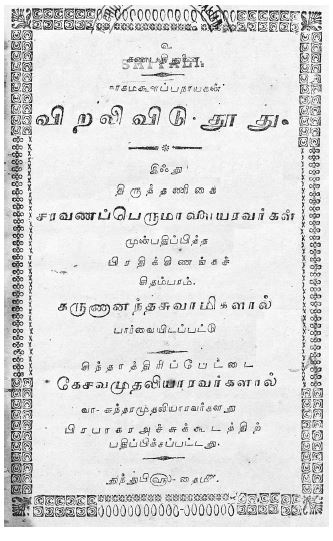 உ
கணபதி துணை.
நாகமகூளப்பநாயகன்
விறலிவிடு தூது.
இஃது
திருத்தணிகை
சரவணப்பெருமாளையரவர்கள்
முன்பதிப்பித்த
பிரதிக்கிணங்கச்
சிதம்பரம்.
கருணானந்தசுவாமிகளால்
பார்வையிடப்பட்டு
சிந்தாத்திரிப்பேட்டை
கேசவமுதலியாரவர்களால்
வா-சுந்தரமுதலியாரவர்களது
பிரபாகரஅச்சுக்கூடத்திற்
பதிப்பிக்கப்பட்டது.
தைமீ